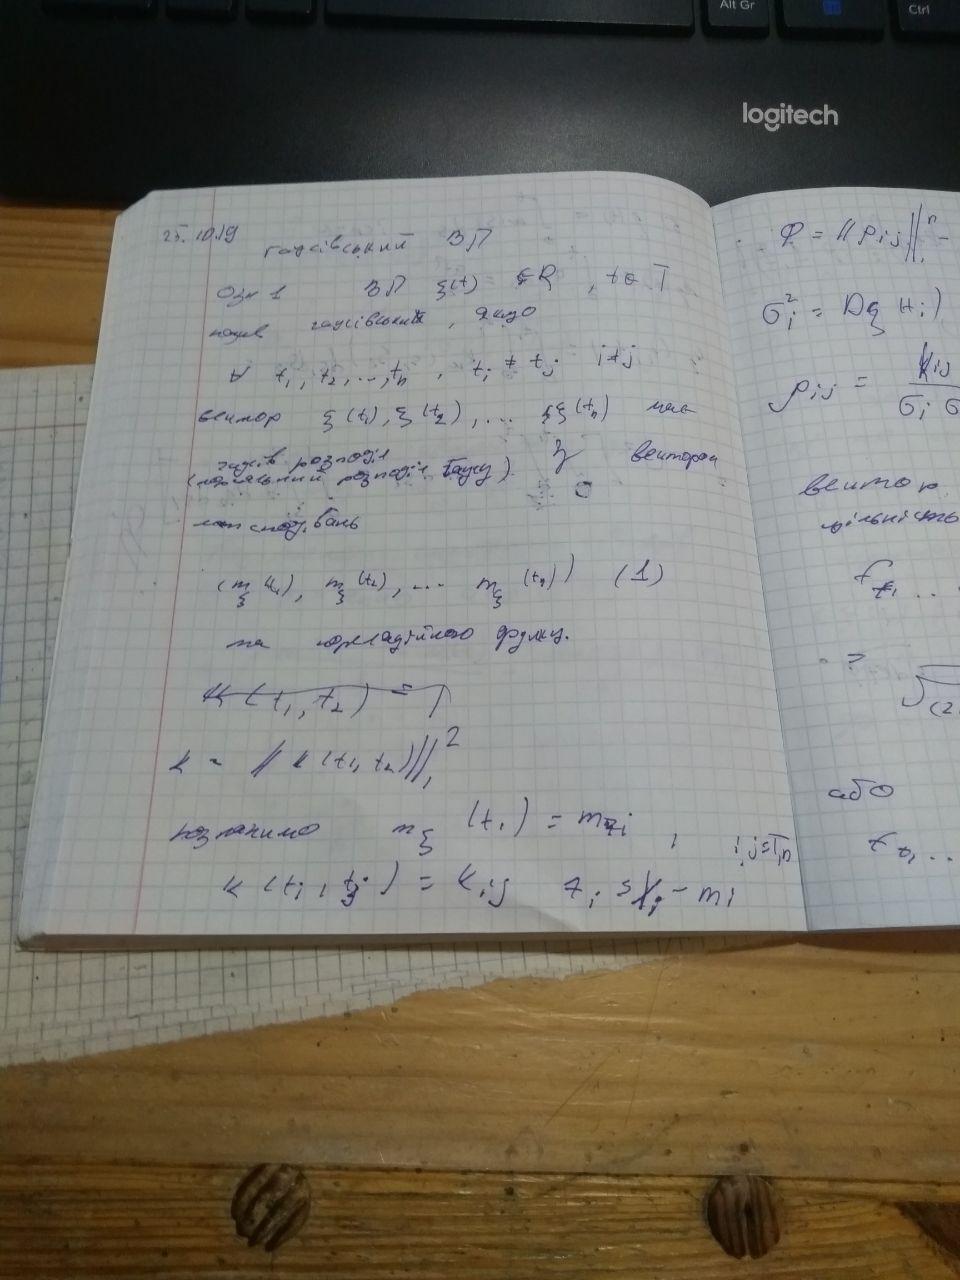 Alt Gr
Ctrl
logitech
25.10.19
гаусівський ВП
Озн 1 ВП ξ(t) ∈ R, t ∈ T
назив гаусівським, якщо
∀ t₁, t₂, ..., tₙ, tᵢ ≠ tⱼ i≠j
вектор ξ(t₁), ξ(t₂), ... ξ(tₙ) має
гаусів розподіл
(нормальний розподіл Гаусу) З вектором
мат сподівань
(m_ξ(t₁), m_ξ(t₂), ... m_ξ(tₙ)) (1)
та кореляційною функц.
K(t₁, t₂) =
K = ||K(t₁, t₂)||₁²
позначимо m_ξ(tᵢ) = mᵢ, i,j=1,n
K(tᵢ, tⱼ) = Kᵢⱼ zᵢ = xᵢ - mᵢ
ρ = ||ρᵢⱼ||₁ⁿ -
σᵢ² = Dξ(tᵢ)
ρᵢⱼ = Kᵢⱼ / σᵢ σ
вектор
щільність
f t₁ ...
= √(2
або
f t₁ ...